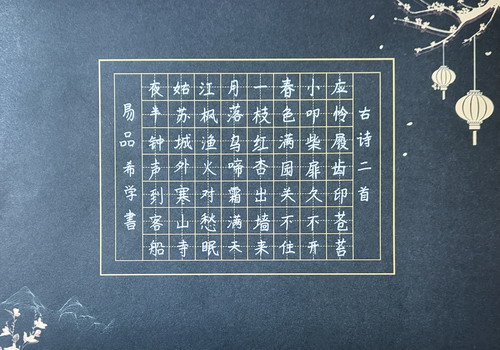 古诗二首
应怜屐齿印苍苔
小叩柴扉久不开
春色满园关不住
一枝红杏出墙来
月落乌啼霜满天
江枫渔火对愁眠
姑苏城外寒山寺
夜半钟声到客船
易品希学書